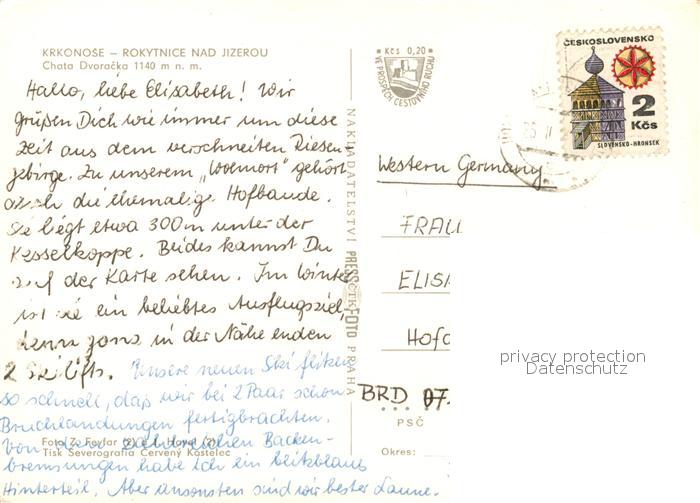 KRKONOŠE – ROKYTNICE NAD JIZEROU
Chata Dvoračka 1140 m n. m.
Hallo, liebe Elisabeth! Wir
grüßen Dich wie immer um diese
Zeit aus dem verschneiten Riesen
gebirge. Zu unserem „Wohnort" gehört
auch die ehemalige Hofbaude.
Sie liegt etwa 300 m unter der
Kesselkoppe. Beides kannst Du
auf der Karte sehen. Im Winter
ist sie ein beliebtes Ausflugsziel,
denn ganz in der Nähe enden
2 Skilifts. Unsere neuen Ski flitzen
so schnell, daß wir bei 2 Paar schon
Bruchlandungen fertigbrachten.
Von den zahlreichen Backen-
bremsungen habe ich ein blitzblaues
Hinterteil. Aber ansonsten sind wir bester Laune.
Foto Z. Feyfar (2) a J. Havel (2)
Tisk Severografia Červený Kostelec
NAKLADATELSTVÍ PRESSFOTO PRAHA
ČTK
Kčs 0,20
VE PROSPĚCH CESTOVNÍHO RUCHU
ČESKOSLOVENSKO
2
Kčs
SLOVENSKO-HRONSEK
Western Germany
FRAU
ELIS
Hof
BRD 07.
PSČ
Okres:
privacy protection
Datenschutz